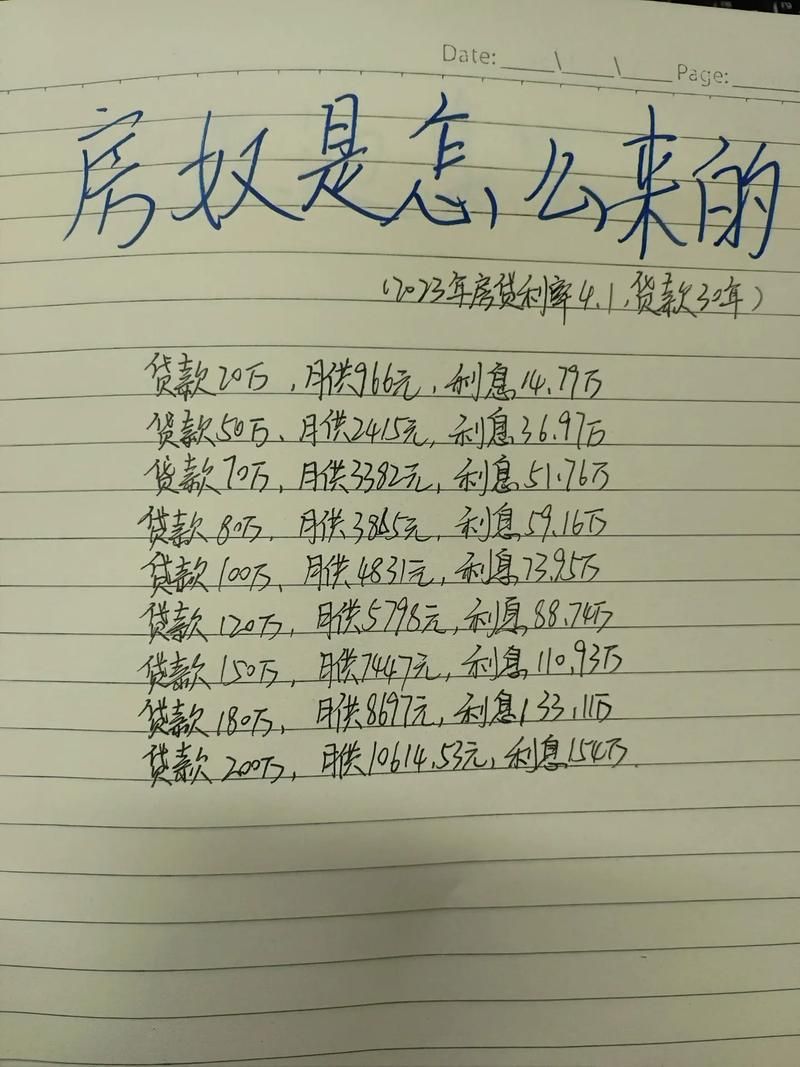 Date: ____\____\____ Page:____
房奴是怎么来的
(2023年房贷利率4.1,贷款30年)
贷款20万,月供966元,利息14.79万
贷款50万、月供2415元,利息36.97万
贷款70万,月供3382元,利息51.76万
贷款80万,月供3865元,利息59.16万
贷款100万、月供4831元,利息73.95万
贷款120万,月供5798元,利息88.74万
贷款150万,月供7447元,利息110.93万
贷款180万,月供8697元,利息133.11万
贷款200万,月供10614.53元,利息154万.